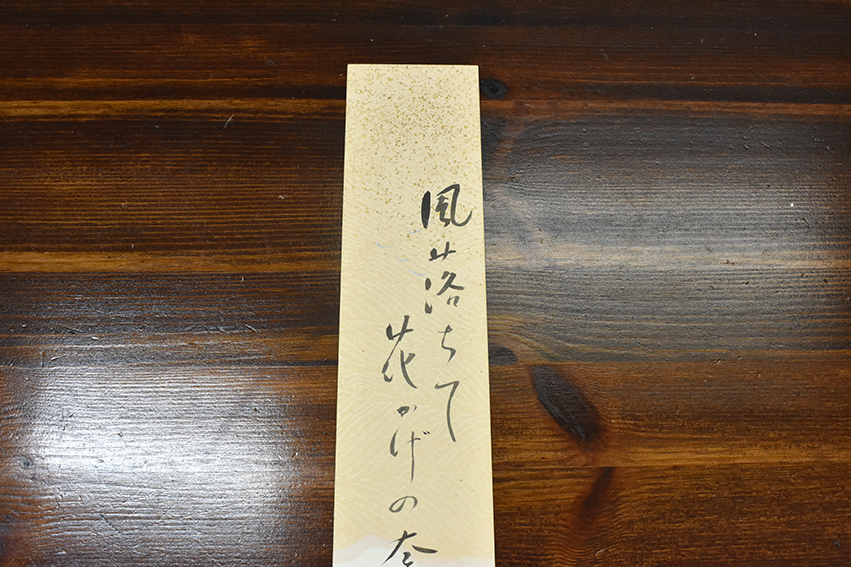 風落ちて
花かげの